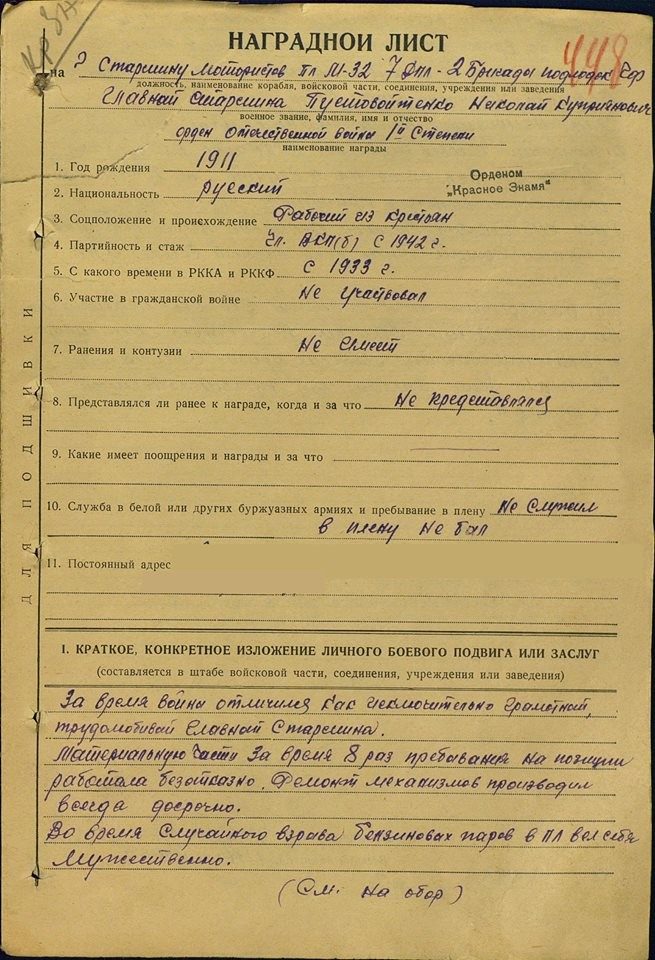 Кр Зн
448
НАГРАДНОЙ ЛИСТ
на Старшину мотористов ПЛ М-32 7 ДПЛ - 2 Бригады подлодок
должность, наименование корабля, войсковой части, соединения, учреждения или заведения
Главной старшина Пустовойтенко Николай Куприянович
военное звание, фамилия, имя и отчество
орден Отечественной войны 1й Степени
наименование награды
Орденом
"Красное Знамя"
1. Год рождения 1911
2. Национальность русский
3. Соцположение и происхождение Рабочий из крестьян
4. Партийность и стаж Чл. ВКП(б) с 1942 г.
5. С какого времени в РККА и РККФ с 1933 г.
6. Участие в гражданской войне Не участвовал
7. Ранения и контузии Не имеет
8. Представлялся ли ранее к награде, когда и за что Не представлялся
9. Какие имеет поощрения и награды и за что
10. Служба в белой или других буржуазных армиях и пребывание в плену Не служил
в плену не был
11. Постоянный адрес
ДЛЯ ПОДШИВКИ
I. КРАТКОЕ, КОНКРЕТНОЕ ИЗЛОЖЕНИЕ ЛИЧНОГО БОЕВОГО ПОДВИГА ИЛИ ЗАСЛУГ
(составляется в штабе войсковой части, соединения, учреждения или заведения)
За время войны отличился как исключительно грамотный,
трудолюбивый Главный Старшина.
Материальную части за время 8 раз пребывания на позиции
работала безотказно. Ремонт механизмов производил
всегда досрочно.
Во время случайного взрыва бензиновых паров в ПЛ вел себя
мужественно.
(См. на обор)